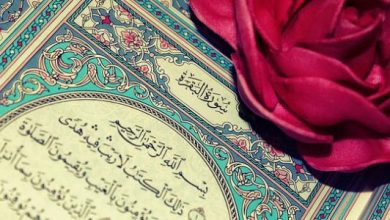 سُورَةُ الْبَقَرَةِ
بِسْمِ اللَّهِ الرَّحْمَٰنِ الرَّحِيمِ
ذَٰلِكَ الْكِتَٰبُ لَا رَيْبَ فِيهِ هُدًى
يُؤْمِنُونَ بِالْغَيْبِ وَيُقِيمُونَ الصَّلَوٰةَ
يُؤْمِنُونَ بِمَا أُنْزِلَ